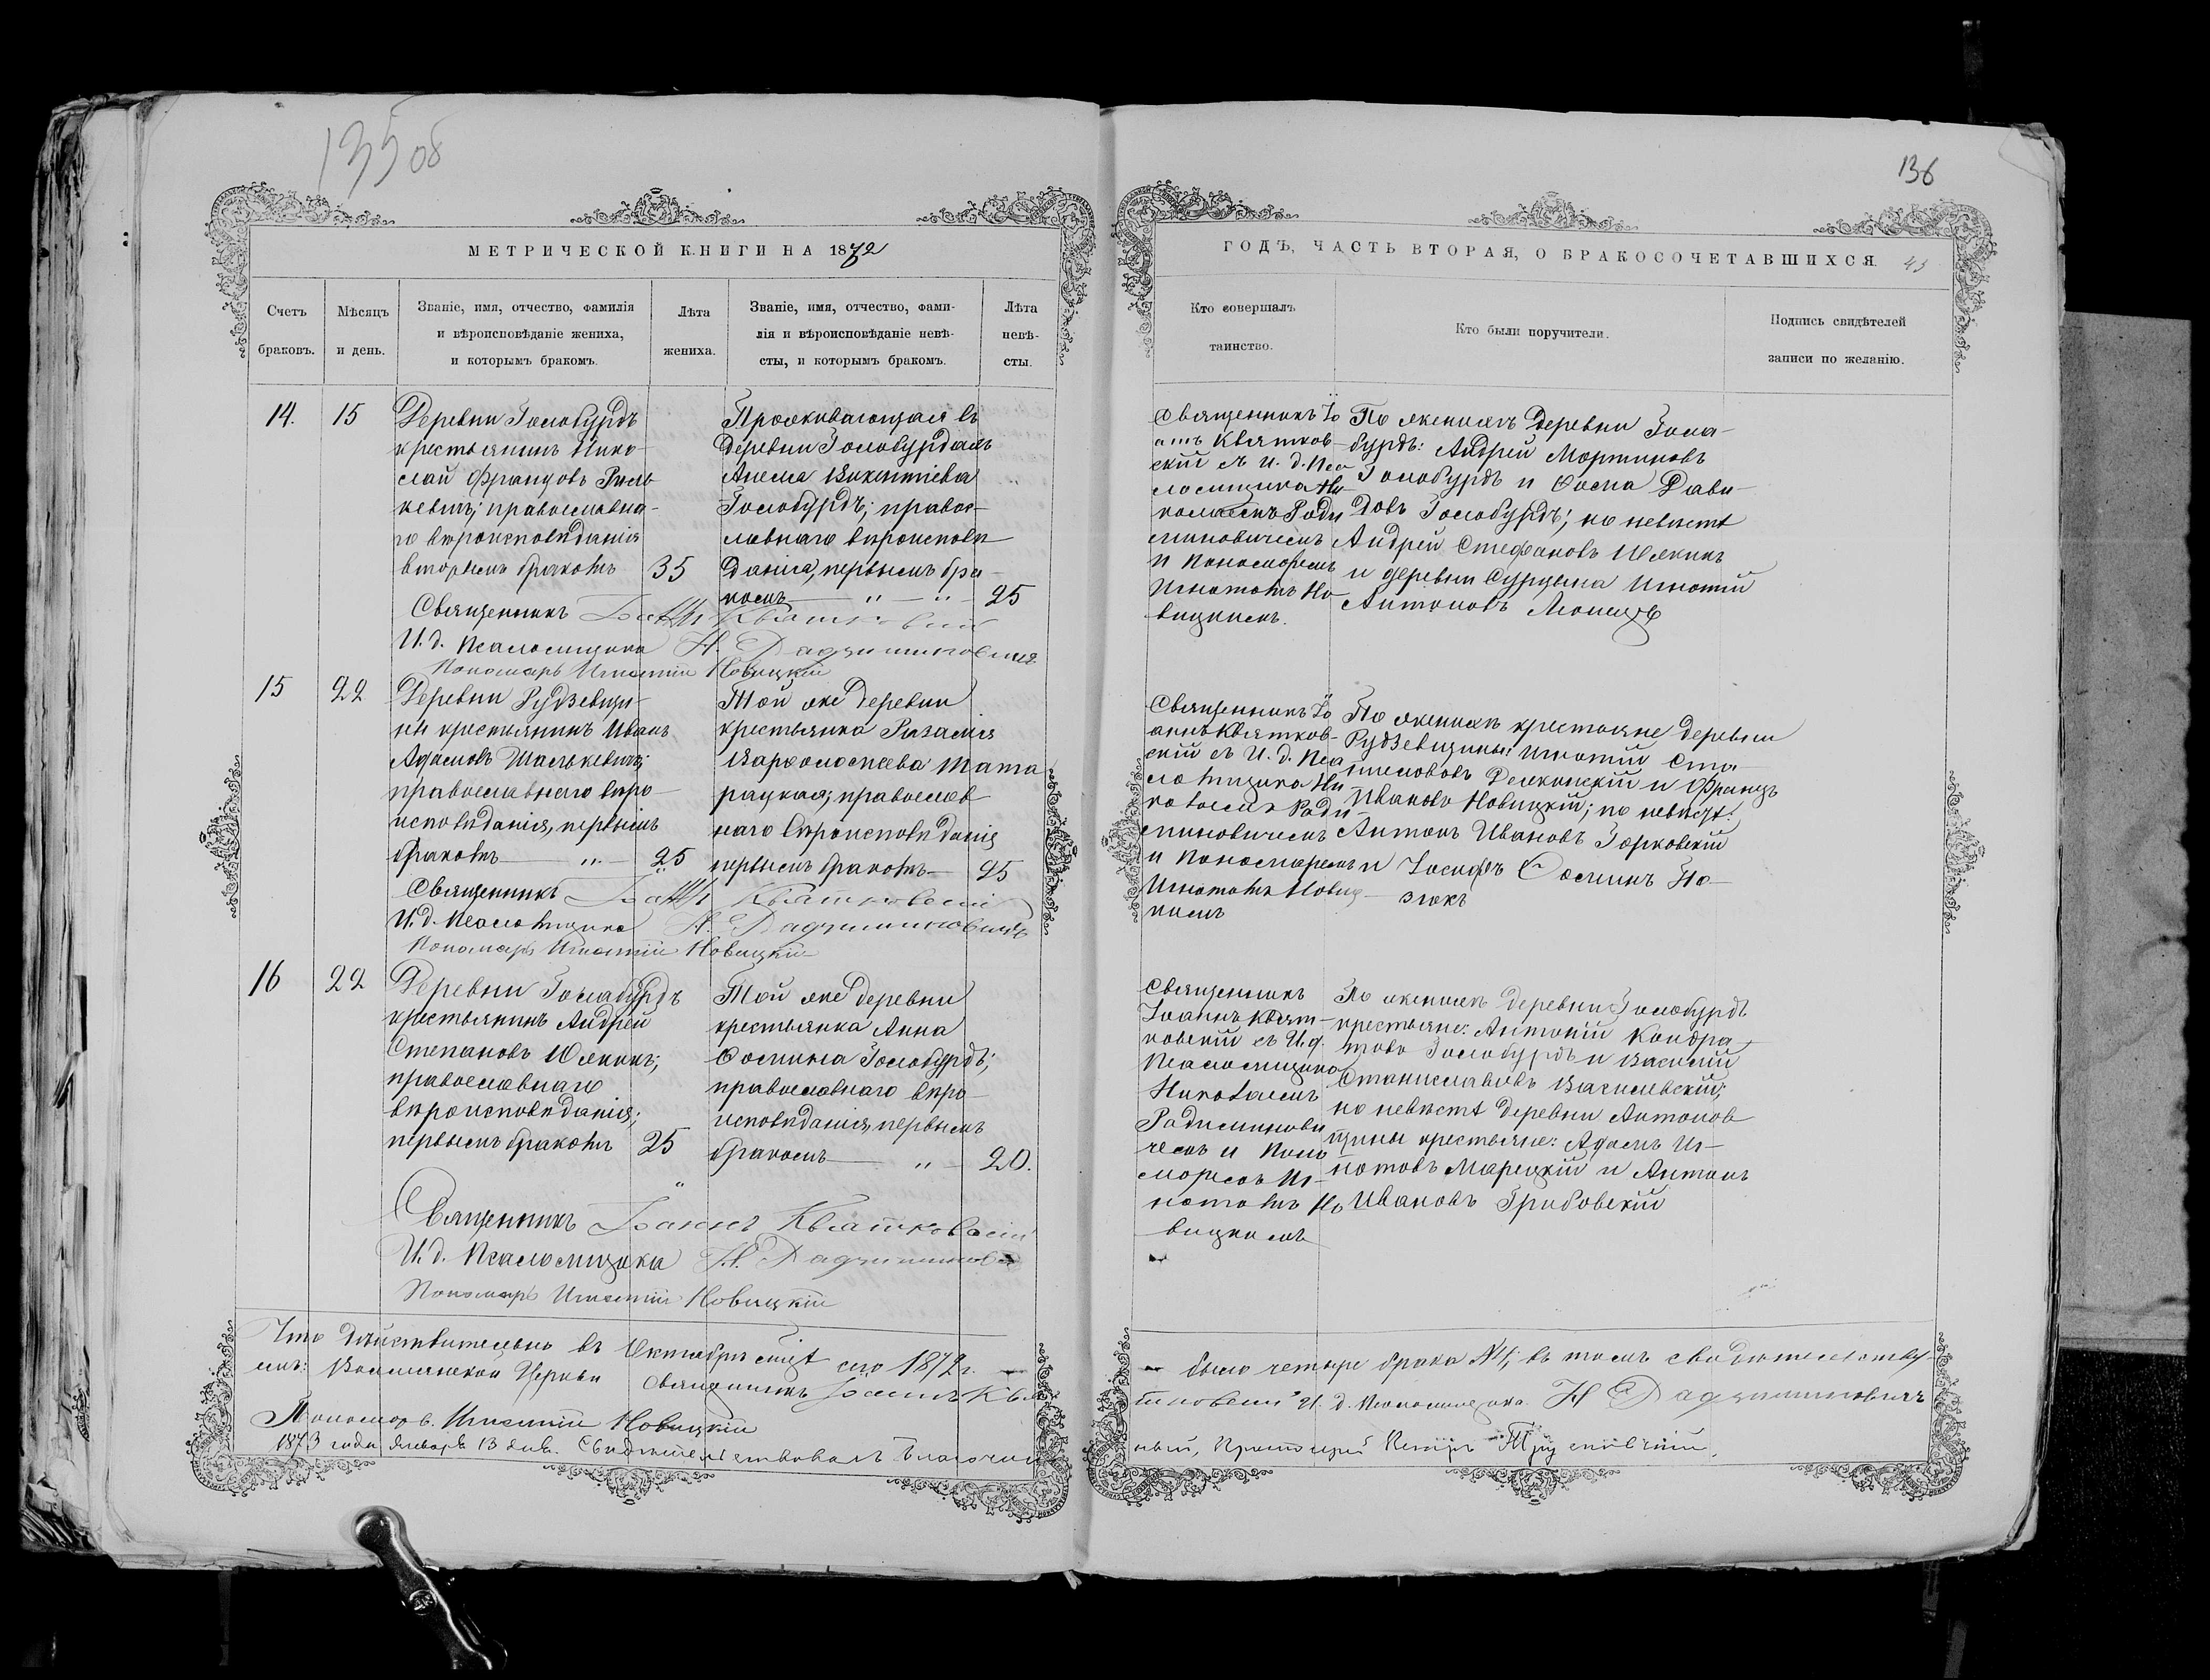 135 об
МЕТРИЧЕСКОЙ КНИГИ НА 1872
Счетъ браковъ.
Мѣсяцъ и день.
Званіе, имя, отчество, фамилія
и вѣроисповѣданіе жениха,
и которымъ бракомъ.
Лѣта жениха.
Званіе, имя, отчество, фами-
лія и вѣроисповѣданіе невѣ-
сты, и которымъ бракомъ.
Лѣта невѣ-
сты.
14.
15
Деревни Голобурдъ
крестьянинъ Нико-
лай Францовъ
православна-
го вѣроисповѣданія
вторымъ бракомъ
35
Проживающая въ
деревни Голобурдахъ
Анела Викентіева
Голобурдъ; правос-
лавнаго вѣроисповѣ-
данія, первымъ бра-
комъ — „ — „ —
25
Священникъ Іоаннъ Квятковскій
И. д. Псаломщика Н. Радзиминовичъ
Пономарь Игнатій Новицкій
15
22
Деревни Рудзевщи-
ны крестьянинъ Иванъ
Адамовъ Шалькевичъ;
православнаго вѣро-
исповѣданія, первымъ
бракомъ — „ —
25
Той же деревни
крестьянка Розалія
Варѳоломѣева Тата
рацкая; православ
наго вѣроисповѣданія
первымъ бракомъ —
25
Священникъ Іоаннъ Квятковскій
И. д. Псаломщика Н. Радзиминовичъ
Пономарь Игнатій Новицкій
16
22
Деревни Голабурдъ
крестьянинъ Андрей
Степановъ Юженъ;
православнаго
вѣроисповѣданія;
первымъ бракомъ
25
Той же деревни
крестьянка Анна
Ѳомина Голобурдъ;
православнаго вѣро-
исповѣданія, первымъ
бракомъ — „ —
20.
Священникъ Іоаннъ Квятковскій
И. д. Псаломщика Н. Радзиминов
Пономарь Игнатій Новицкій
Что дѣйствительно въ Октябрѣ сего 1872 г. —
Церкви Священникъ Іоаннъ Квя
Пономарь Игнатій Новицкій
1873 года Января 13 дня. Свидѣтельствовалъ Благочин
136
ГОДЪ, ЧАСТЬ ВТОРАЯ, О БРАКОСОЧЕТАВШИХСЯ.
Кто совершалъ
таинство.
Кто были поручители.
Подпись свидѣтелей
записи по желанію.
Священникъ Іо
аннъ Квятков-
скій съ И. д. Пса
ломщика Ни-
колаемъ Ради
миновичемъ
и Пономаремъ
Игнатомъ Но
вицкимъ.
По женихѣ Деревни Гола-
бурдъ: Андрей Мартиновъ
Голобурдъ и Ѳома Дави-
довъ Голобурдъ; по невѣстѣ
Андрей Стефановъ Юженъ
и деревни Игнатій
Антоновъ
Священникъ Іо
аннъ Квятков-
скій съ И. д. Пса
ломщика Ни
колаемъ Ради
миновичемъ
и Пономаремъ
Игнатомъ Новиц-
кимъ
По женихѣ крестьяне деревни
Рудзевщины: Игнатій
и Францъ
Ивановъ Новицкій; по невѣстѣ:
Антонъ Ивановъ Горковскій
и Іосифъ Ѳоминъ
Священникъ
Іоаннъ Квят-
ковскій съ И. д.
Псаломщика
Николаемъ
Радиминови
чемъ и Поно
маремъ Иг-
натомъ Но
вицкимъ
По женихѣ деревни Голобурдъ
крестьяне: Антоній Кондра
товъ Голобурдъ и Василій
Станиславовъ Василевскій;
по невѣстѣ деревни Антонов
щины крестьяне: Адамъ Иг-
натовъ Марецкій и Антонъ
Ивановъ Грибовскій
— было четыре брака № 4; въ томъ свидѣтельству-
тковскій И. д. Псаломщика Н Радзиминовичъ
ный, Протоіерей